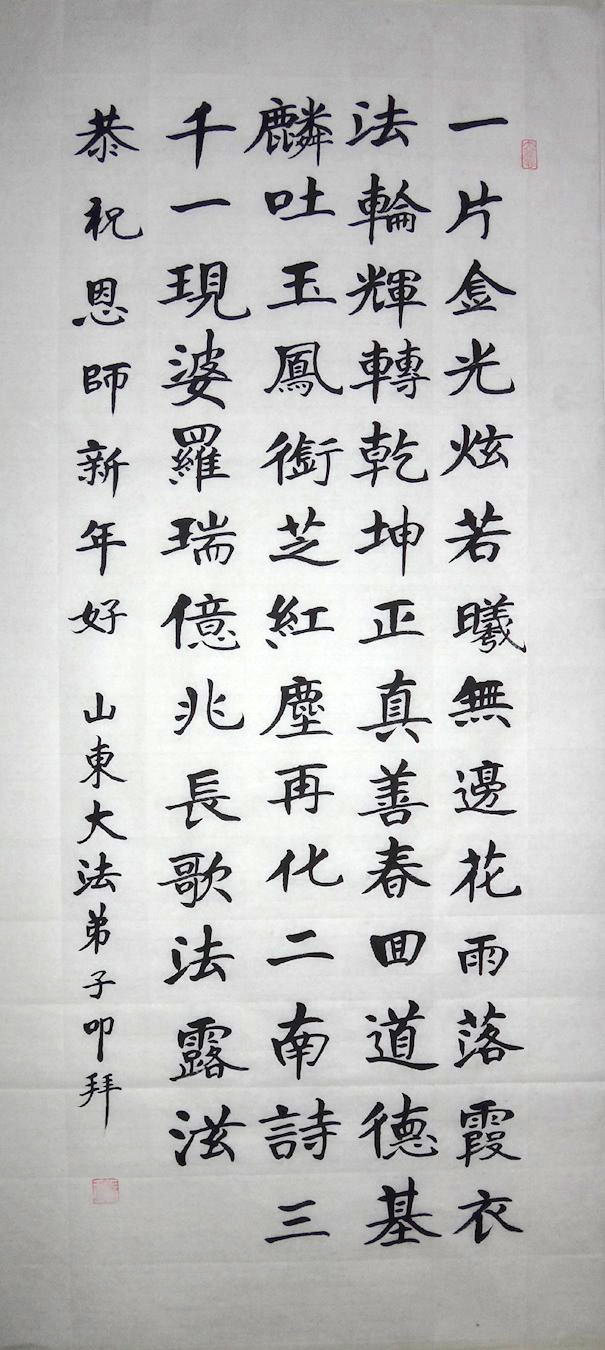 一片金光炫若曦無邊花雨落霞衣
法輪輝轉乾坤正真善春回道德基
麟吐玉鳳銜芝紅塵再化二南詩三
千一現婆羅瑞億兆長歌法露滋
恭祝恩師新年好 山東大法弟子叩拜